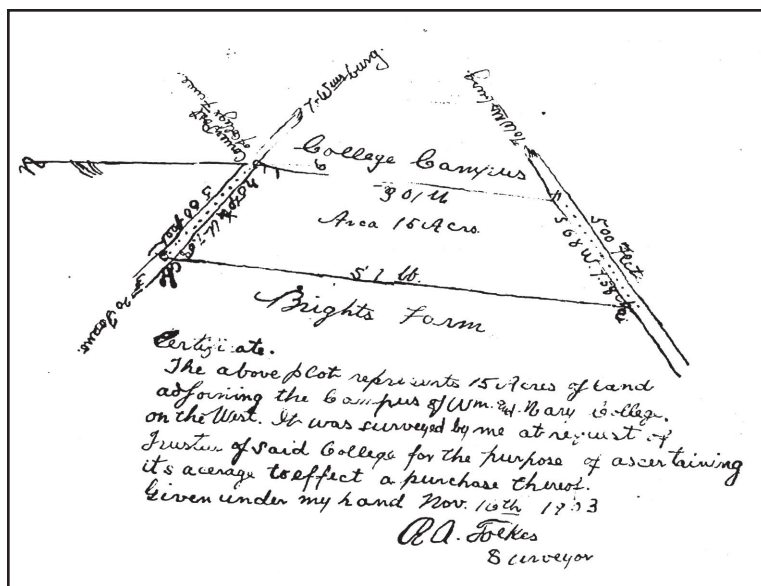 Corner Post
of College Fence
To Wmsburg
To Wmsburg
College Campus
Area 15 Acres
500 Feet
560 feet
S 68 W 7.58 chs
Brights Farm
Certificate.
The above plot represents 15 Acres of Land
adjoining the Campus of Wm. and Mary College.
on the West. It was surveyed by me at request of
Trustees of Said College for the purpose of ascertaining
it's acerage to effect a purchase thereof.
Given under my hand Nov. 16th
R A. Folkes
Surveyor